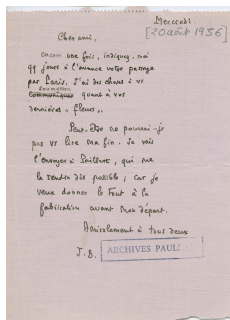 Mercredi
[20 août 1936]
Cher ami,
encore une fois, indiquez-moi
qq jours à l'avance votre passage
par Paris. J'ai des choses à vs
soumettre
communiquer quant à vos
dernières "fleurs".
Peut-être ne pourrai-je
pas vs lire ma fin. Je vais
l'envoyer à Paulhan, qui me
la rendra dès possible, car je
veux donner le tout à la
fabrication avant mon départ.
Amicalement à tous deux
J. B.
ARCHIVES PAUL